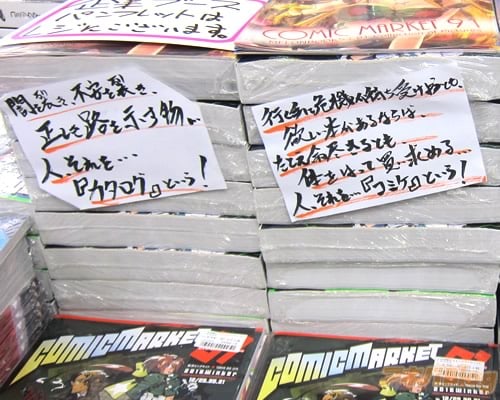 パンフレットは
レジにございます
COMIC MARKET 91
闇を裂き、不安を裂き、
正しき路を示す物、
人、それを…
『カタログ』という!
行く手に危機が待ち受けようと、
欲しい本があるならば、
たとえ命尽きるとも、
体をはって買い求める…
人、それを…『コミケ』という!
COMICMARKET 91
COMICMARKET 91